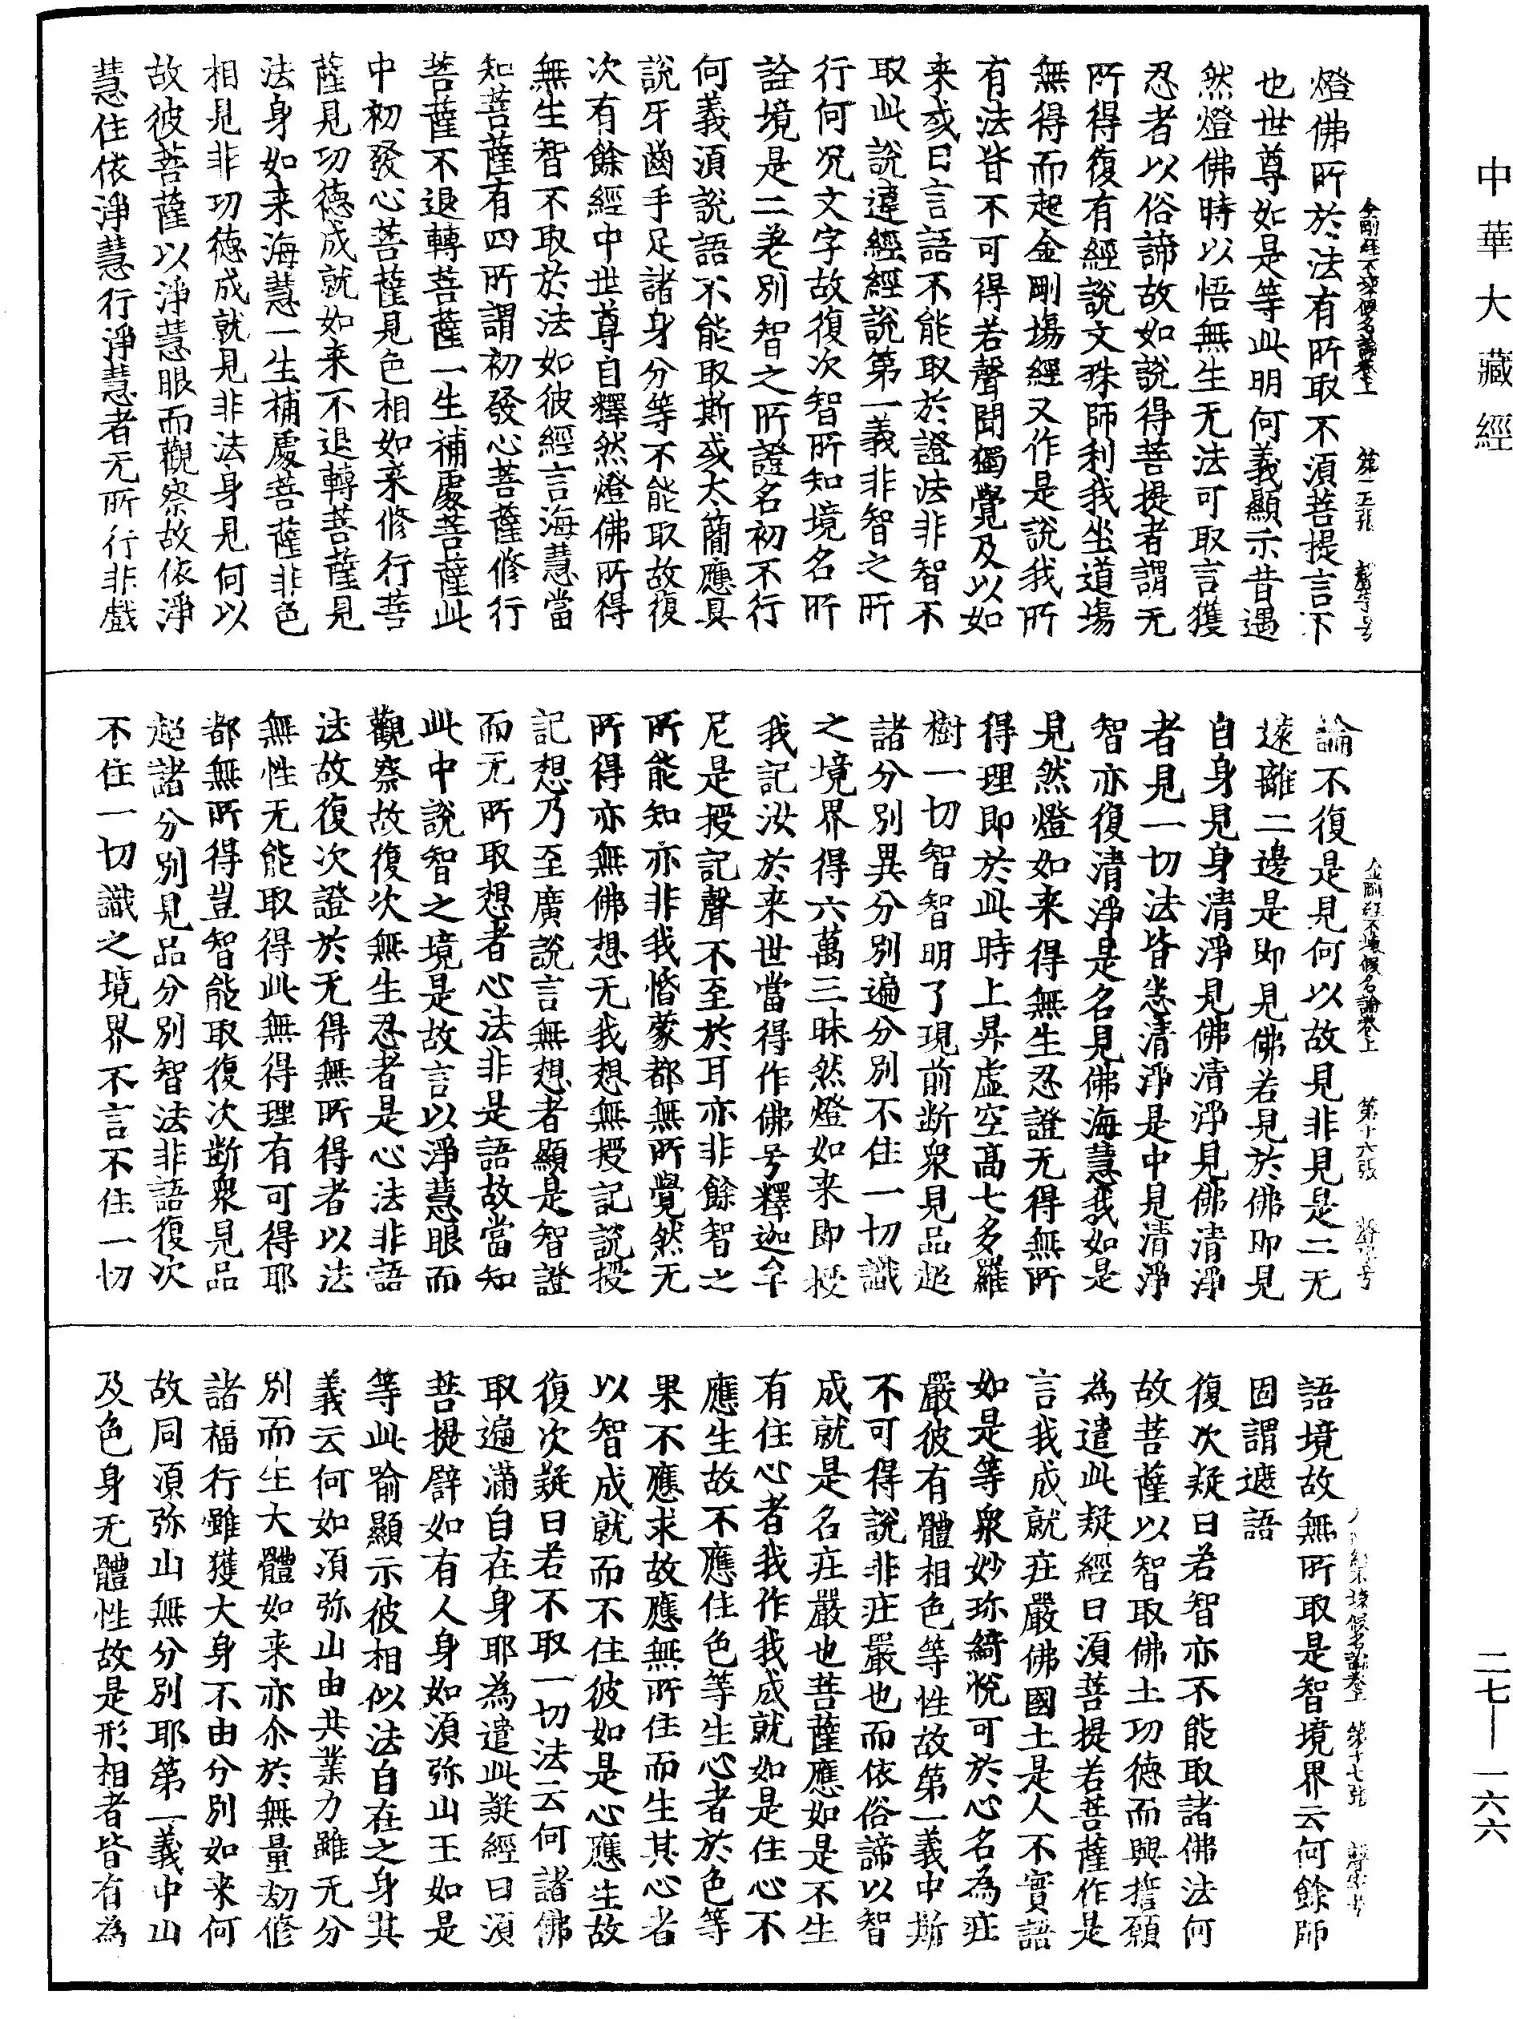 中華大藏經
金剛經不壞假名論卷上 第十五張
燈佛所於法有所取不須菩提言不
也世尊如是等此明何義顯示昔遇
然燈佛時以悟無生无法可取言獲
忍者以俗諦故如說得菩提者謂无
所得復有經說文殊師利我坐道場
無得而起金剛場經又作是說我所
有法皆不可得若聲聞獨覺及以如
来或曰言語不能取於證法非智不
取此說違經經說第一義非智之所
行何况文字故復次智所知境名所
詮境是二差別智之所證名初不行
何義須說語不能取斯或太簡應具
說牙齒手足諸身分等不能取故復
次有餘經中世尊自釋然燈佛所得
無生智不取於法如彼經言海慧當
知菩薩有四所謂初發心菩薩修行
菩薩不退轉菩薩一生補處菩薩此
中初發心菩薩見色相如来修行菩
薩見功德成就如来不退轉菩薩見
法身如来海慧一生補處菩薩非色
相見非功德成就見非法身見何以
故彼菩薩以淨慧眼而觀察故依淨
慧住依淨慧行淨慧者无所行非戲
金剛經不壞假名論卷上 第十六張
論不復是見何以故見非見是二无
遠離二邊是即見佛若見於佛即見
自身見身清淨見佛清淨見佛清淨
者見一切法皆悉清淨是中見清淨
智亦復清淨是名見佛海慧我如是
見然燈如来得無生忍證无得無所
得理即於此時上昇虛空高七多羅
樹一切智智明了現前断衆見品超
諸分別異分別遍分別不住一切識
之境界得六萬三昧然燈如来即授
我記汝於来世當得作佛号釋迦牟
尼是授記聲不至於耳亦非餘智之
所能知亦非我惛蒙都無所覺然无
所得亦無佛想无我想無授記說授
記想乃至廣說言無想者顯是智證
而无所取想者心法非是語故當知
此中說智之境是故言以淨慧眼而
觀察故復次無生忍者是心法非語
法故復次證於无得無所得者以法
無性无能取得此無得理有可得耶
都無所得豈智能取復次断衆見品
超諸分別見品分別智法非語復次
不住一切識之境界不言不住一切
第十七張
語境故無所取是智境界云何餘師
固謂遮語
復次疑曰若智亦不能取諸佛法何
故菩薩以智取佛土功德而興誓願
為遣此疑經曰須菩提若菩薩作是
言我成就莊嚴佛國土是人不實語
如是等衆妙珎綺悅可於心名為莊
嚴彼有體相色等性故第一義中斯
不可得說非莊嚴也而依俗諦以智
成就是名莊嚴也菩薩應如是不生
有住心者我作我成就如是住心不
應生故不應住色等生心者於色等
果不應求故應無所住而生其心者
以智成就而不住彼如是心應生故
復次疑曰若不取一切法云何諸佛
取遍滿自在身耶為遣此疑經曰須
菩提譬如有人身如須弥山王如是
等此喻顯示彼相似法自在之身其
義云何如須弥山由共業力雖无分
別而生大體如来亦尒於無量劫修
諸福行雖獲大身不由分別如来何
故同須弥山無分別耶第一義中山
及色身无體性故是形相者皆有為
二七—一六六